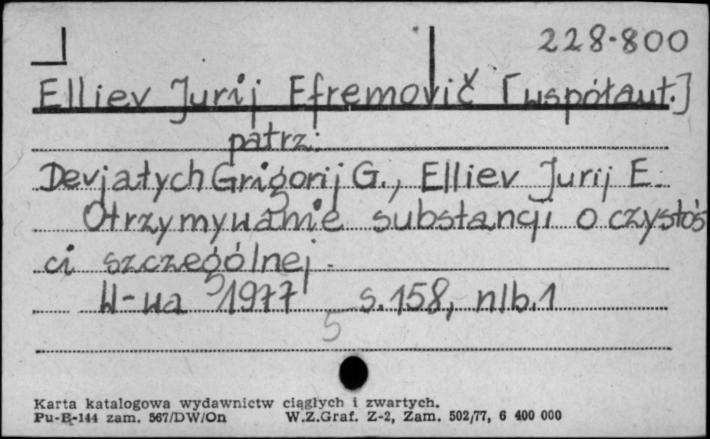 228-800
Elliev Jurij Efremovič [współaut.]
patrz:
Devjatych Grigorij G., Elliev Jurij E.
Otrzymywanie substancji o czystoś
ci szczególnej.
W-wa 1977 s.158, nlb.1
5
Karta katalogowa wydawnictw ciągłych i zwartych.
Pu-B-144 zam. 567/DW/On W.Z.Graf. Z-2, Zam. 502/77, 6 400 000